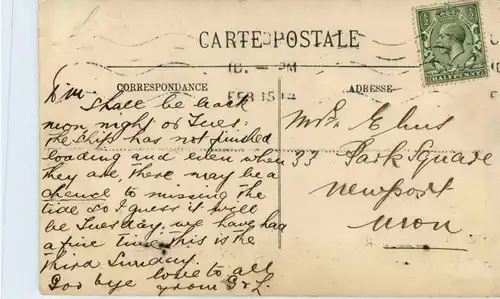 CARTE POSTALE
FEB 15 14
HALFPENNY
CORRESPONDANCE
ADRESSE
Shall be back
mon night or Tues:
the ship has not finished
loading and even when
they are, there may be a
chance to missing the
tide so I guess it will
be Tuesday. we have had
a fine time this is the
third Sunday.
Goo bye love to all
from G & L.
33 Park Square
Newport
mon